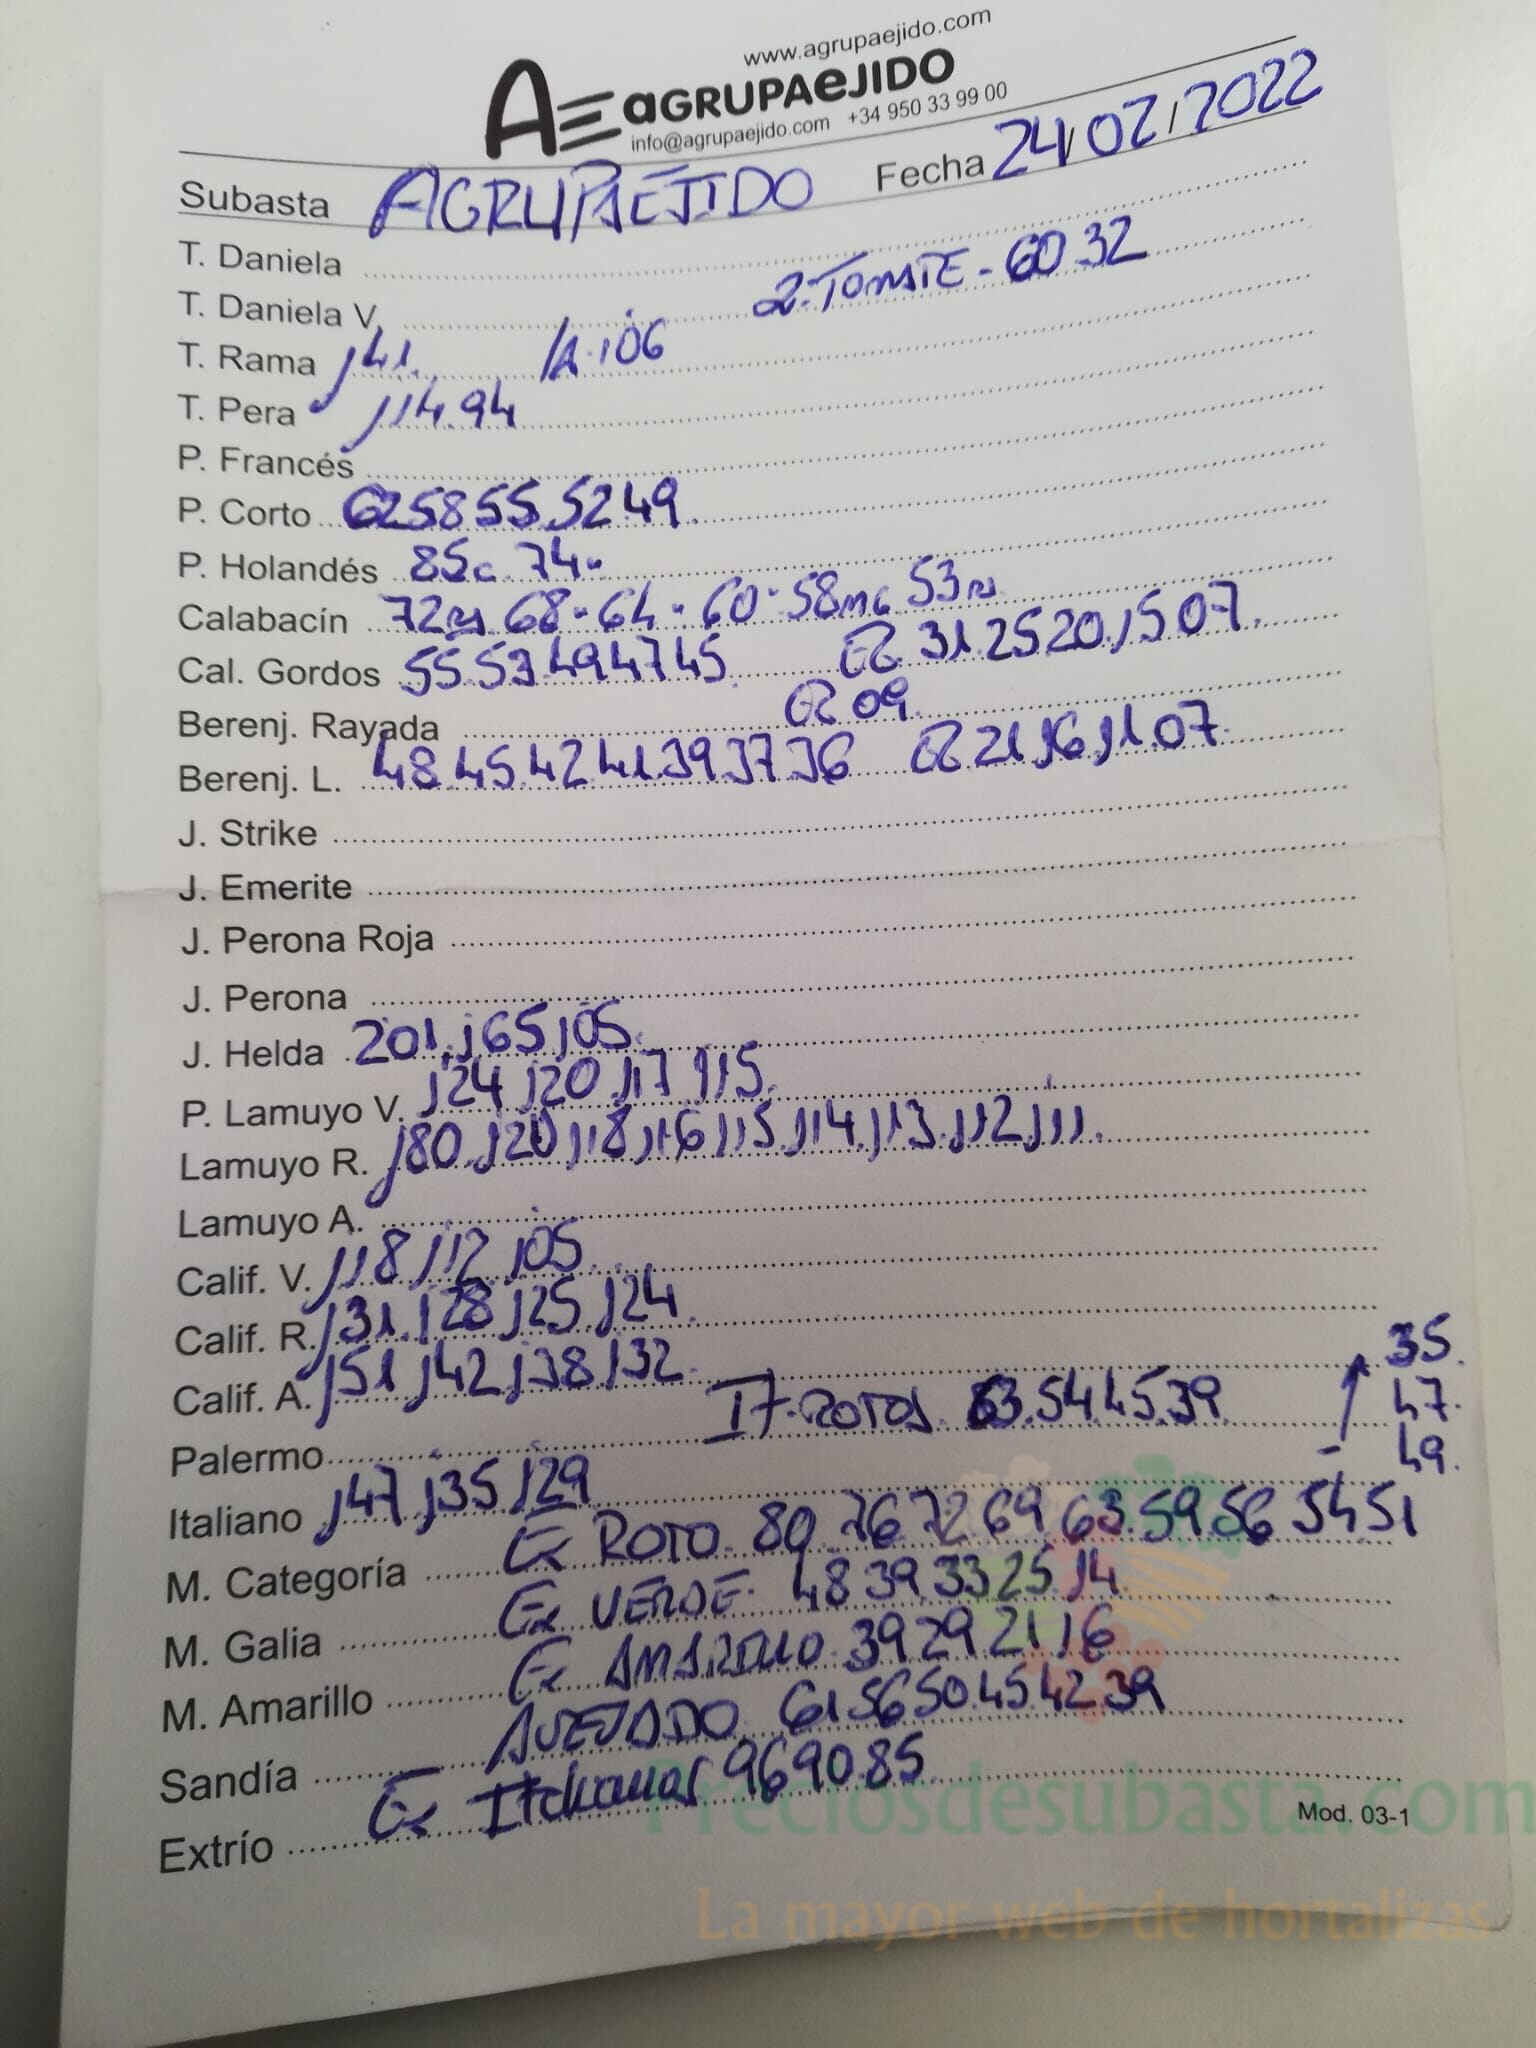 www.agrupaejido.com
AE aGRUPAeJIDO
info@agrupaejido.com +34 950 33 99 00
Subasta AGRUPAEJIDO Fecha 24/02/2022
T. Daniela
T. Daniela V. 2-TOMATE - 60 32
T. Rama 141. 1A-106
T. Pera 114.94
P. Francés
P. Corto 62 58 55.52 49.
P. Holandés 85c 74-
Calabacín 72 68-64-60-58mc 53
Cal. Gordos 55.53.49 47 45 31.25 20.15 07.
Berenj. Rayada 09.
Berenj. L. 48.45.42 41.39.37 36 21.16.11.07.
J. Strike
J. Emerite
J. Perona Roja
J. Perona
J. Helda 201.165 105.
P. Lamuyo V. 124 120.117 115.
Lamuyo R. 180.120.118.116 115.114.113.112 111.
Lamuyo A.
Calif. V. 118 112 105
Calif. R. 131.128 125 124.
Calif. A. 151 142 138 132.
35.
47.
49.
Palermo IT. ROTOS 63.54.45.39.
Italiano 147 135 129
M. Categoría Ex ROTO. 80.76 72 69 63.59.56 54 51
M. Galia Ex VERDE. 48 39 33 25 14
M. Amarillo Ex AMARILLO 39 29 21 16
Sandía ASEJADO 61 56 50.45 42 39
Extrío Ex Italianos 96 90.85
Mod. 03-1
Preciosdesubasta.com
La mayor web de hortalizas